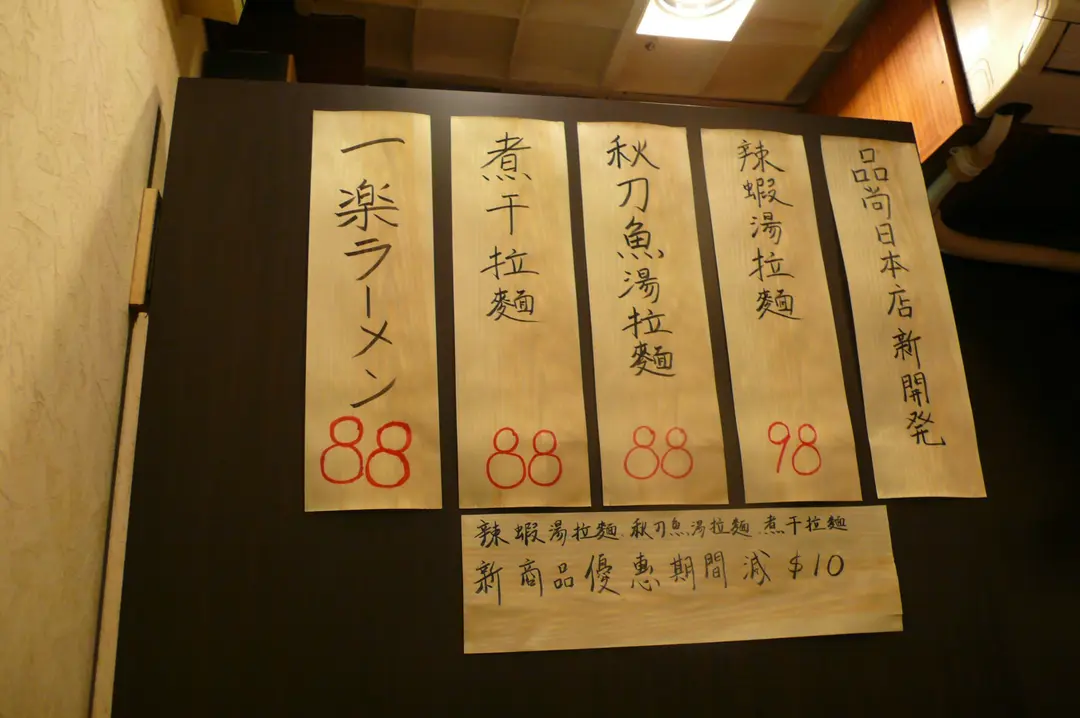 品尚日本店新開発
辣蝦湯拉麵
98
秋刀魚湯拉麵
88
煮干拉麵
88
一楽ラーメン
88
辣蝦湯拉麵.秋刀魚湯拉麵.煮干拉麵
新商品優惠期間減$10